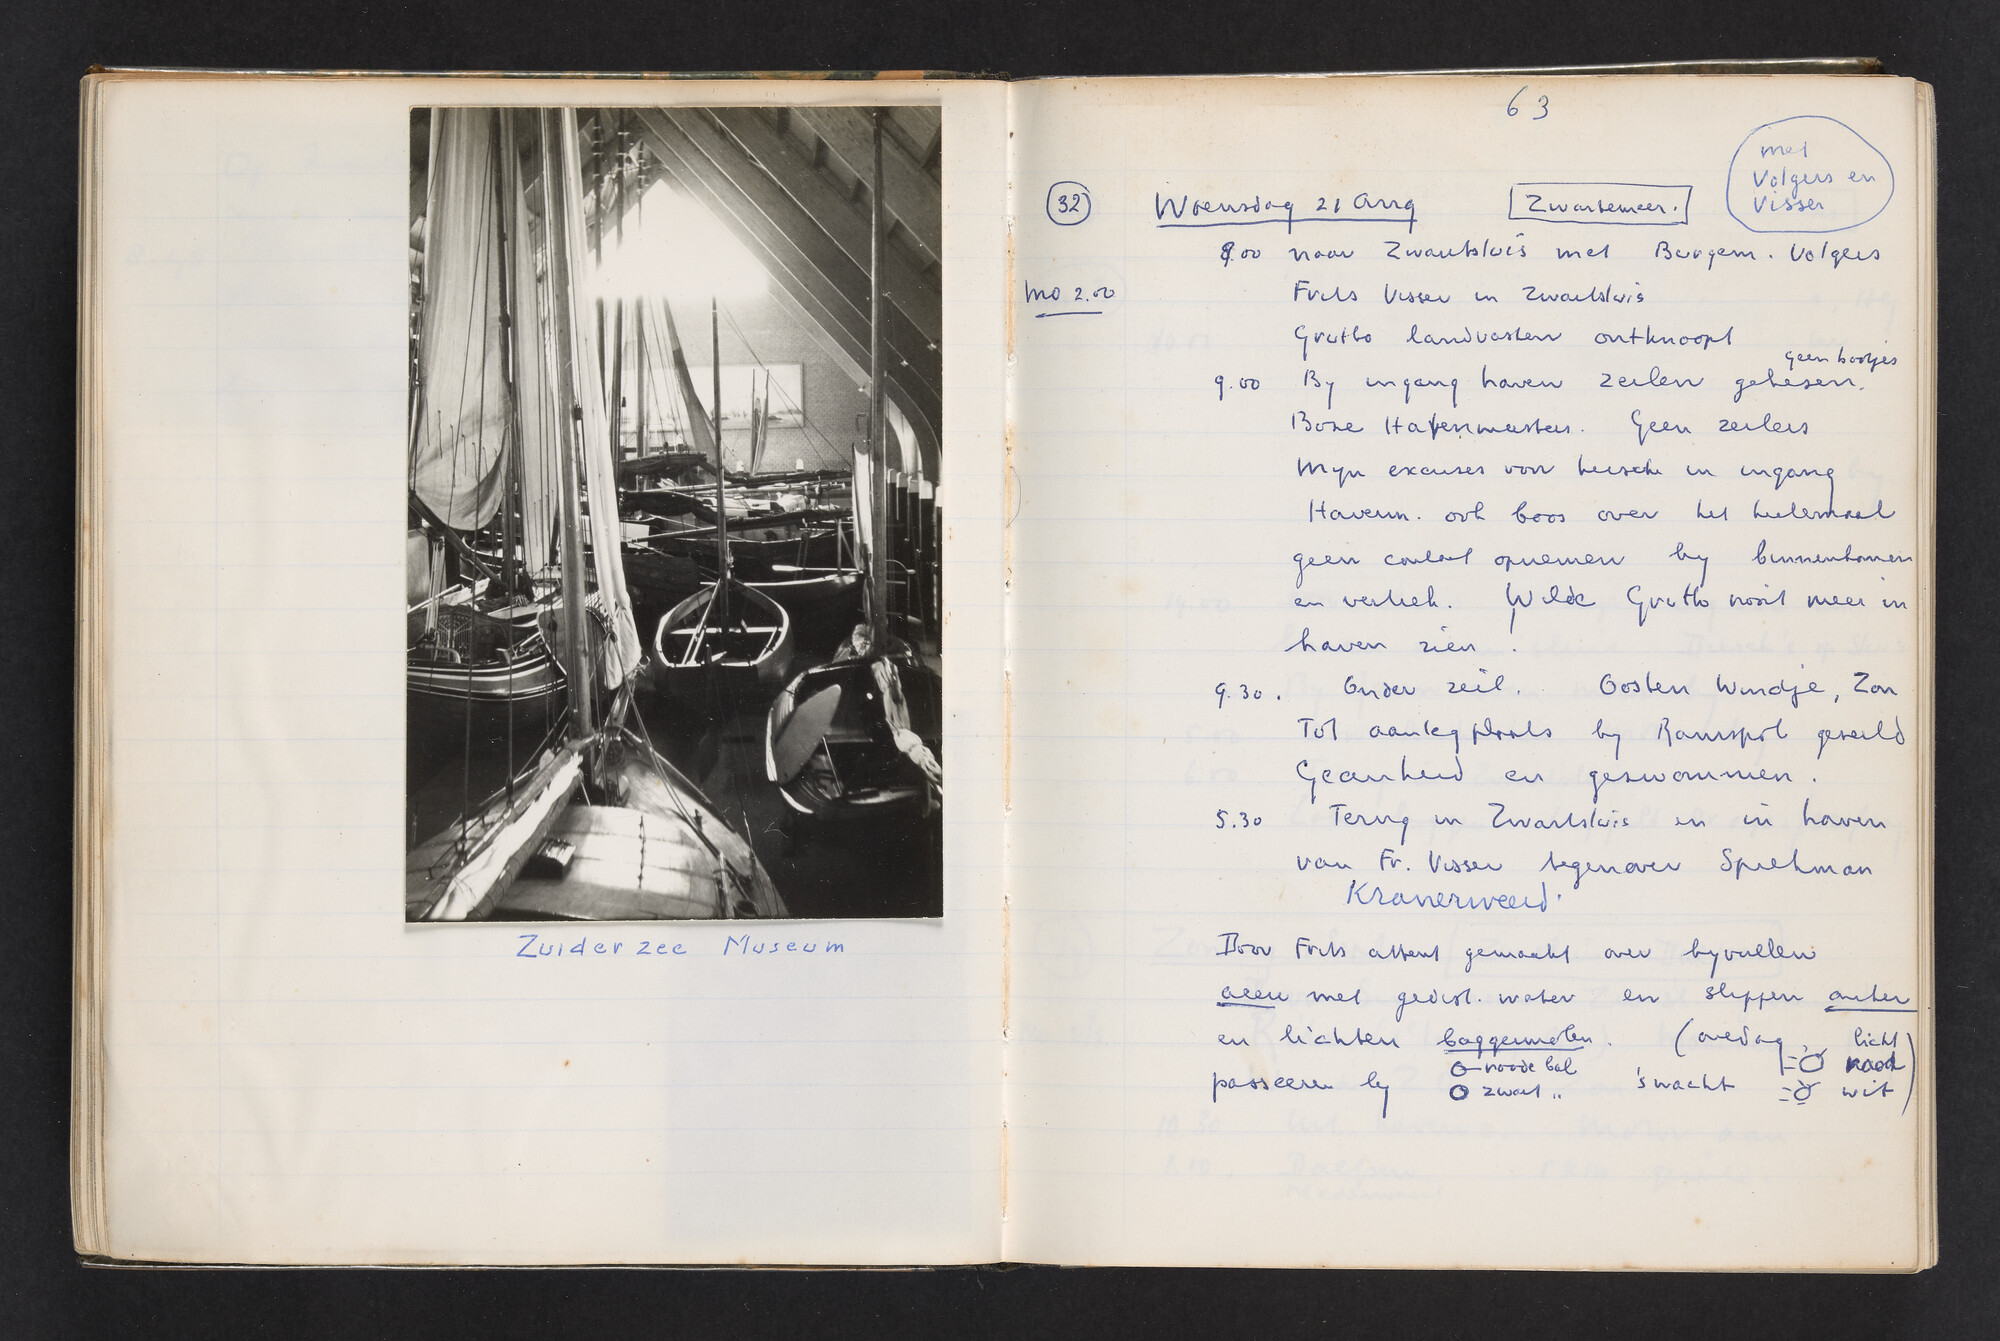 Zuiderzee Museum
63
met
Volgers en
Visser
32
Woensdag 21 Aug
Zwartemeer.
8.00 naar Zwartsluis met Burgem. Volgers
mo 2.00
Frits Visser in Zwartsluis
Grutto landvasten ontknoopt
geen bootjes
9.00 By ingang haven zeilen gehesen.
Boze Havenmeesters. Geen zeilers
Myn excuses voor in ingang
Havenm. ook boos over het helemaal
geen contact opnemen by binnenkomen
en vertrek. Wilde Grutto nooit meer in
haven zien!
9.30. Onder zeil. Oosten Windje, Zon
Tot aanlegplaats by Ramspol gezeild
Geankerd en geswommen.
5.30 Terug in Zwartsluis en in haven
van Fr. Visser tegenover Spielman
Kranerweerd.
Door Frits attent gemaakt over byvullen
accu met gedist. water en slippen anker
en lichten baggermolen. (overdag, licht
passeren by roode bal 's nacht rood
zwart " wit)